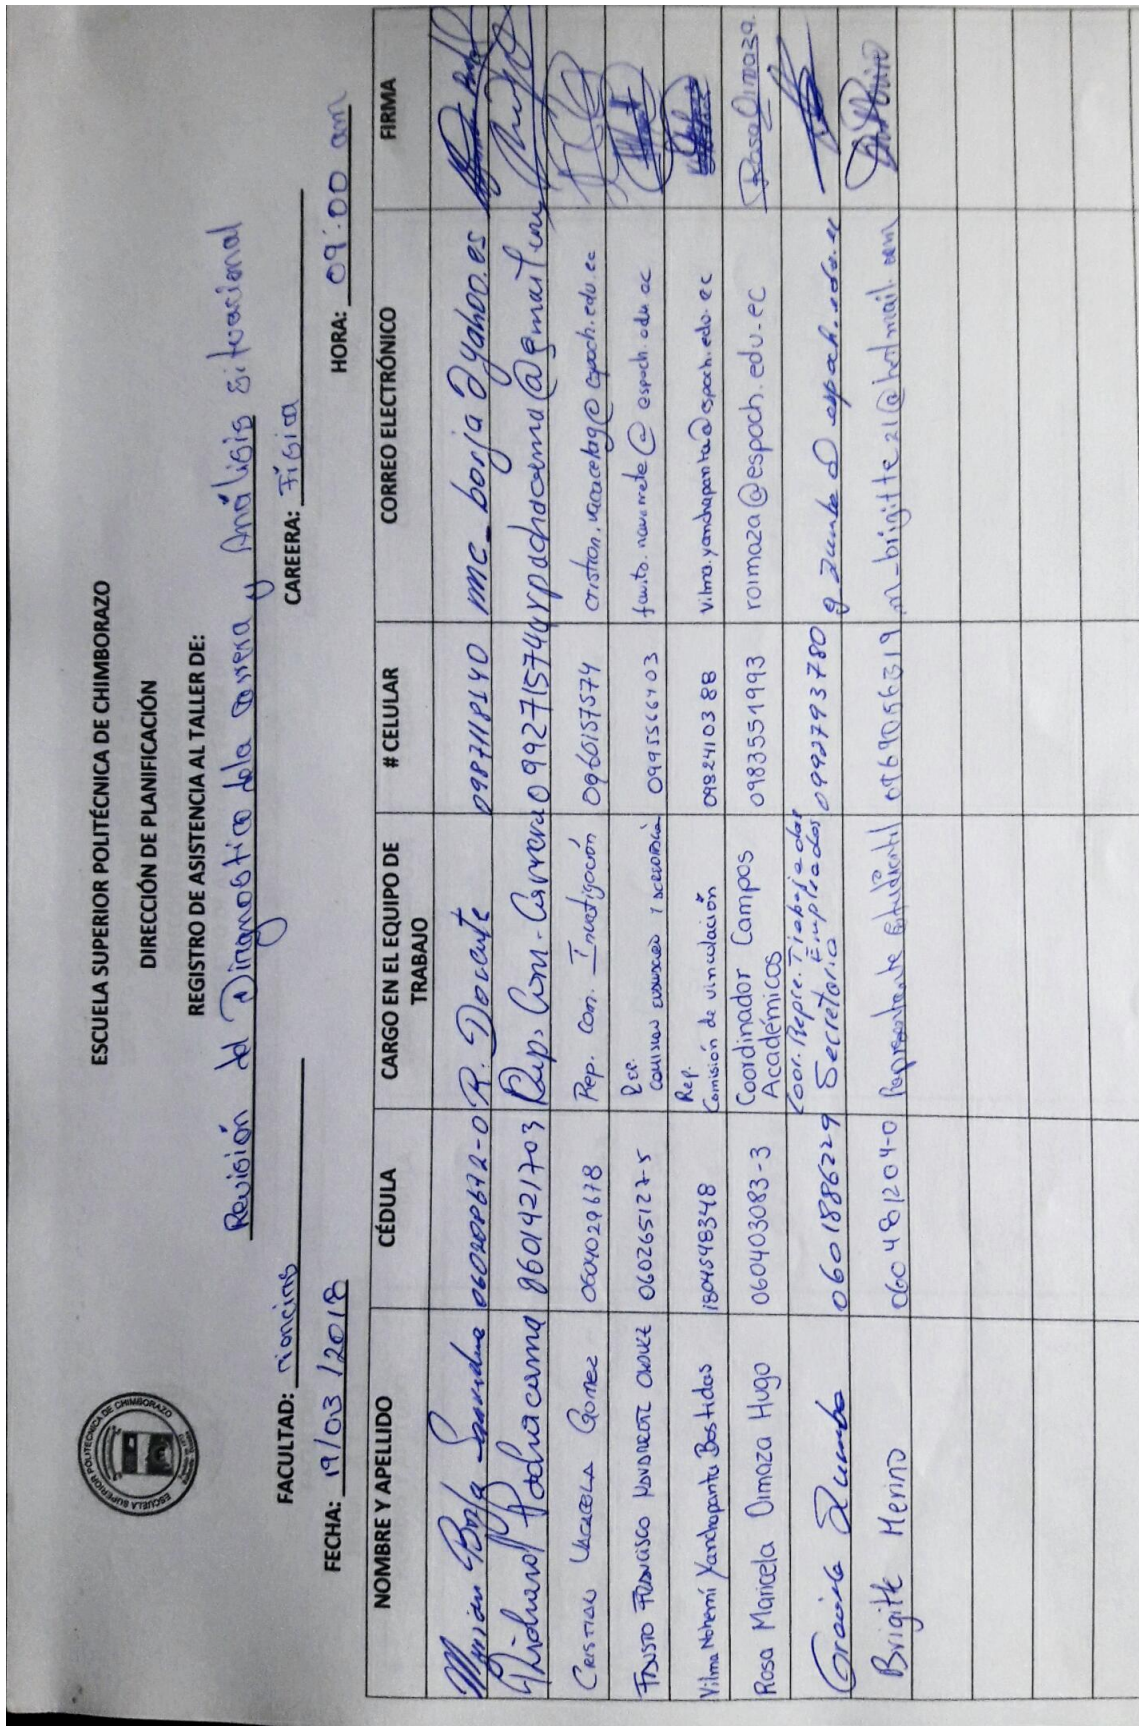 ESCUELA SUPERIOR POLITÉCNICA DE CHIMBORAZO
DIRECCIÓN DE PLANIFICACIÓN
REGISTRO DE ASISTENCIA AL TALLER DE:
Revisión del Diagnostico dela Carrera y Análisis situacional
FACULTAD: Ciencias CAREERA: Física
FECHA: 19/03/2018 HORA: 09:00 am
NOMBRE Y APELLIDO CÉDULA CARGO EN EL EQUIPO DE TRABAJO # CELULAR CORREO ELECTRÓNICO FIRMA
Borja R. Docente 0987118140 mc_borja@yahoo.es
Pachacama 0601421703 Rep. Com. Carrera
CRISTIAN VACACELA Gomez 0604029678 Rep. Com. Investigación 0960157574 cristian.vacacelag@espoch.edu.ec
FAUSTO FRANCISCO NAVARRETE CHÁVEZ 060265127-5 REP. COMISION EVALUACION Y 0995566403 fausto.navarrete@espoch.edu.ec
Vilma Nohemí Yanchapanta Bastidas 1804598348 Rep. Comisión de vinculación 0982410388 vilma.yanchapanta@espoch.edu.ec
Rosa Maricela Oimaza Hugo 060403083-3 Coordinador Campos Académicos 0983551993 roimaza@espoch.edu.ec Rosa Oimaza.
Zumba 0601886229 Coor. Repre. Trabajador Empleados Secretaria 0992793780 gzumba@espoch.edu.ec
Brigitte Merino 060481204-0 Representante Estudiantil 0969056319 m_brigitte21@hotmail.com